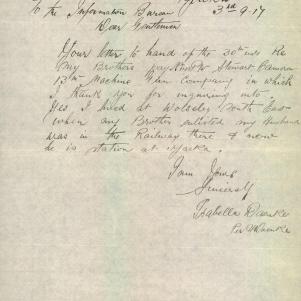 3rd 9-17
To the Information Bureau
Dear Gentlemen
Your letter to hand of the 30th ins Re
My Brothers pay Stewart Cameron
13th Machine Gun Company in which
I thank you for inquiring into.
Yes I lived at Wolseley South East
when my Brother enlisted my Husband
was in the Railway there & now
he is station at Yacka.
I am Yours
Sincerely
Isabella
Per